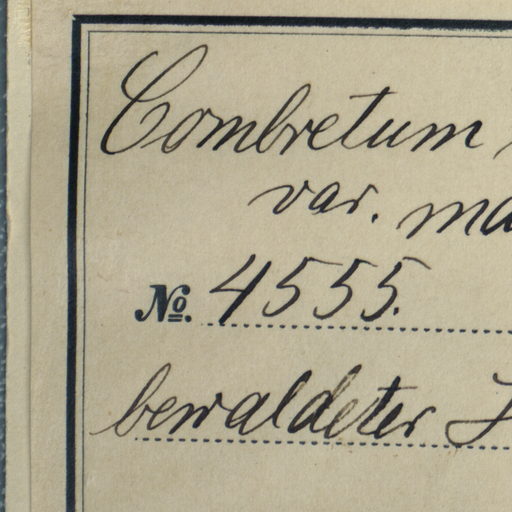 Combretum
var.
No. 4555.
bewaldeter